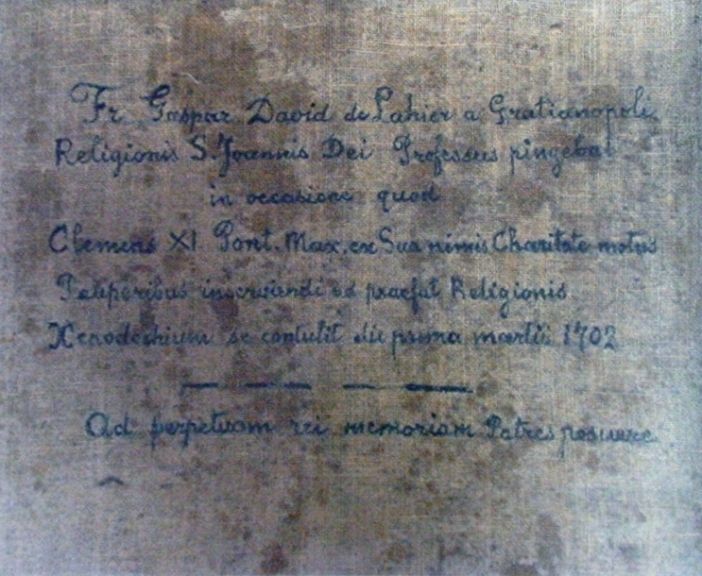 Fr. Gaspar David de Lahier a Gratianopoli
Religionis S. Joannis Dei Professus pingebat
in occasione quod
Clemens XI Pont. Max. ex Sua nimis Charitate motus
Pauperibus inserviendi ad praefat Religionis
Xenodochium se contulit die prima martii 1702
Ad perpetuam rei memoriam Patres posuere